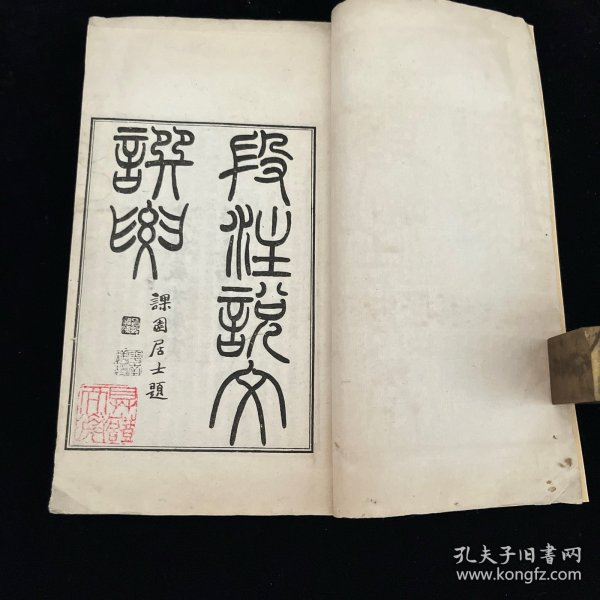 段注說文
撰要
課園居士題
孔夫子旧书网
www.kongfz.com